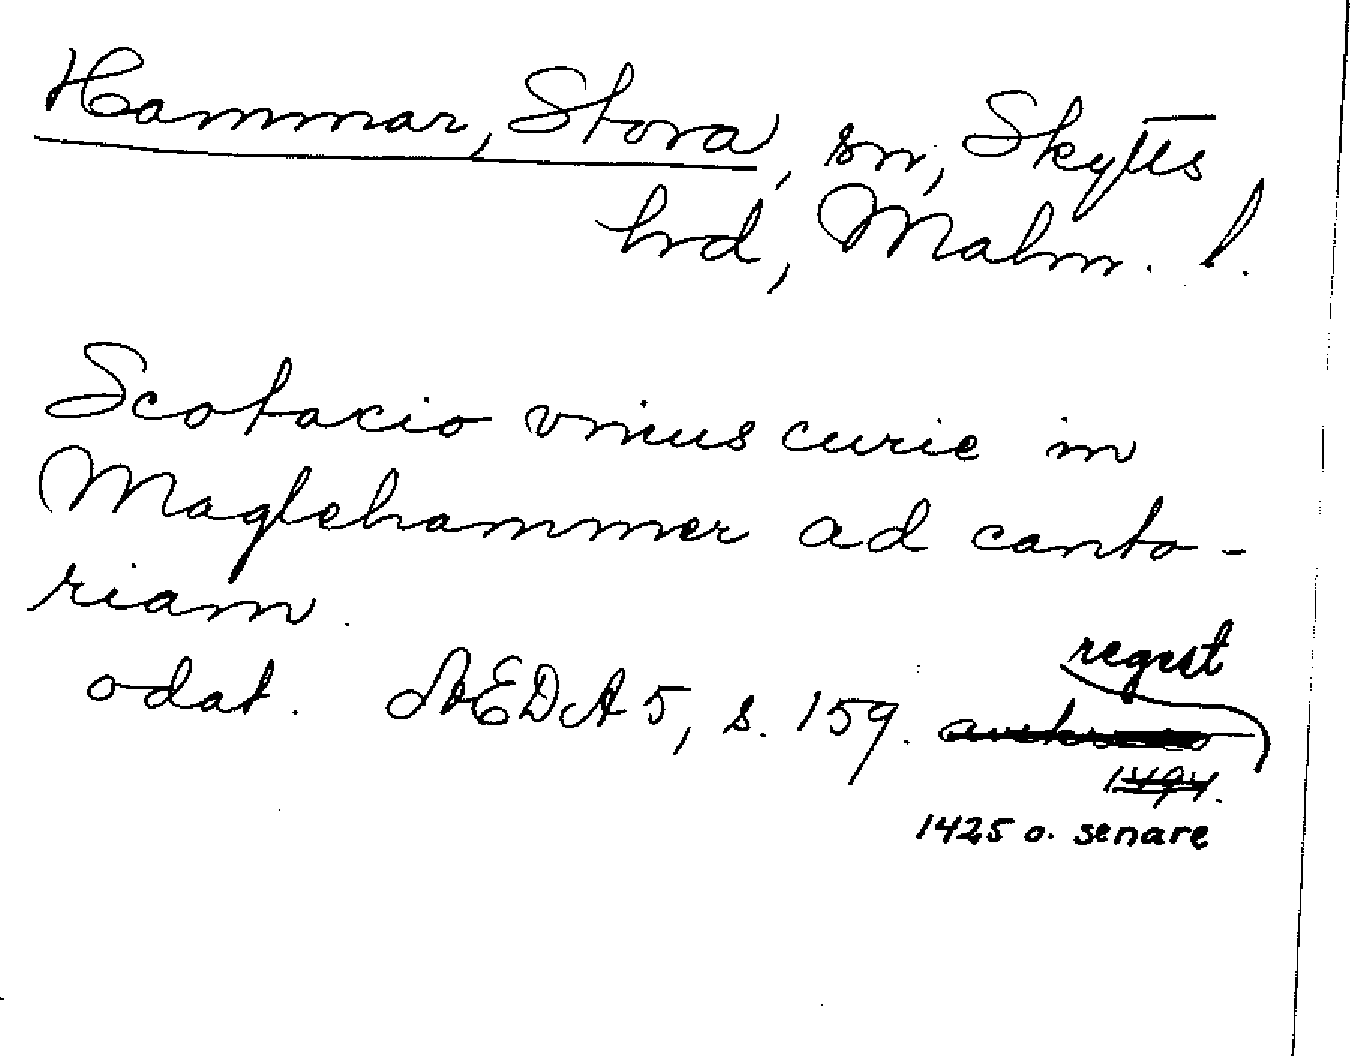 Hammar, Stora, sn, Skytts
hrd, Malm. l.
Scotacio vnius curie in
Maglehammer ad canto-
riam.
odat. ÆDA 5, s. 159.
regest
1494.
1425 o. senare